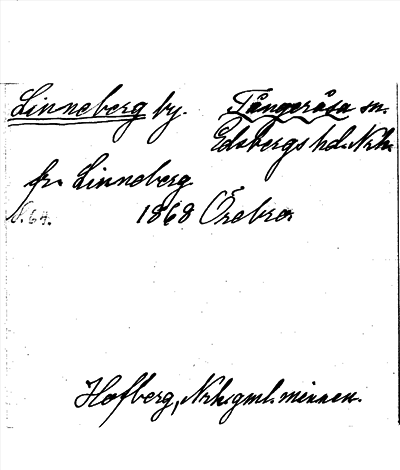 Linneberg by. Tångeråsa sn.
Edsbergs hd. Nrk.
fr. Linneberg
N. 64. 1868 Örebro
Hofberg, Nrk. gml. minnen.